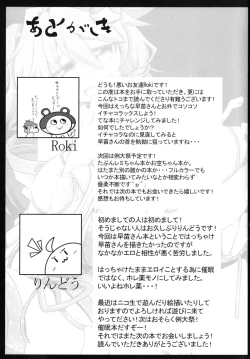 あとがき
Roki
どうも！悪いお友達Rokiです！
この度は本をお手に取っていただき、更には
こんなトコまで読んでくださり有難うございます！
今回はえっちな早苗さんとお外でコソコソ
イチャコラックスしてみました！
てな本にチャレンジしてみました！
如何でしたでしょうか？
イチャコラなのに見直してみると
早苗さんの首ソリックスばっかり！
次回は例大祭予定です！
たぶんレミちゃん本かお空ちゃん本か、
はたまた別の誰かの本か・・・フルカラーでも
いつか本描いてみたいなどと相変わらず
優柔不断です＾ρ＾；
それでは、次の本でもお会いできたら嬉しいです。
感想もお待ちしています！
りんどう
初めましての人は初めまして！
そうじゃない人はお久しぶりりんどうです！
今回は早苗さん本ということではっちゃけ
早苗さんを描きたかったのですが
なかなかエロと相性が悪く苦労しました。
はっちゃけたままエロイことする為に催眠
ではなく、ホレ薬モノにしてみました。
いいよねホレ薬・・・！
最近はニコ生で遊んだり絵描いたりして
おりますのでよろしければ遊びに来て
やってください！次はおそらく例大祭！
催眠本だすぞー！
それではまた次の本でお会いしましょう！
読んでいただきありがとうございました！